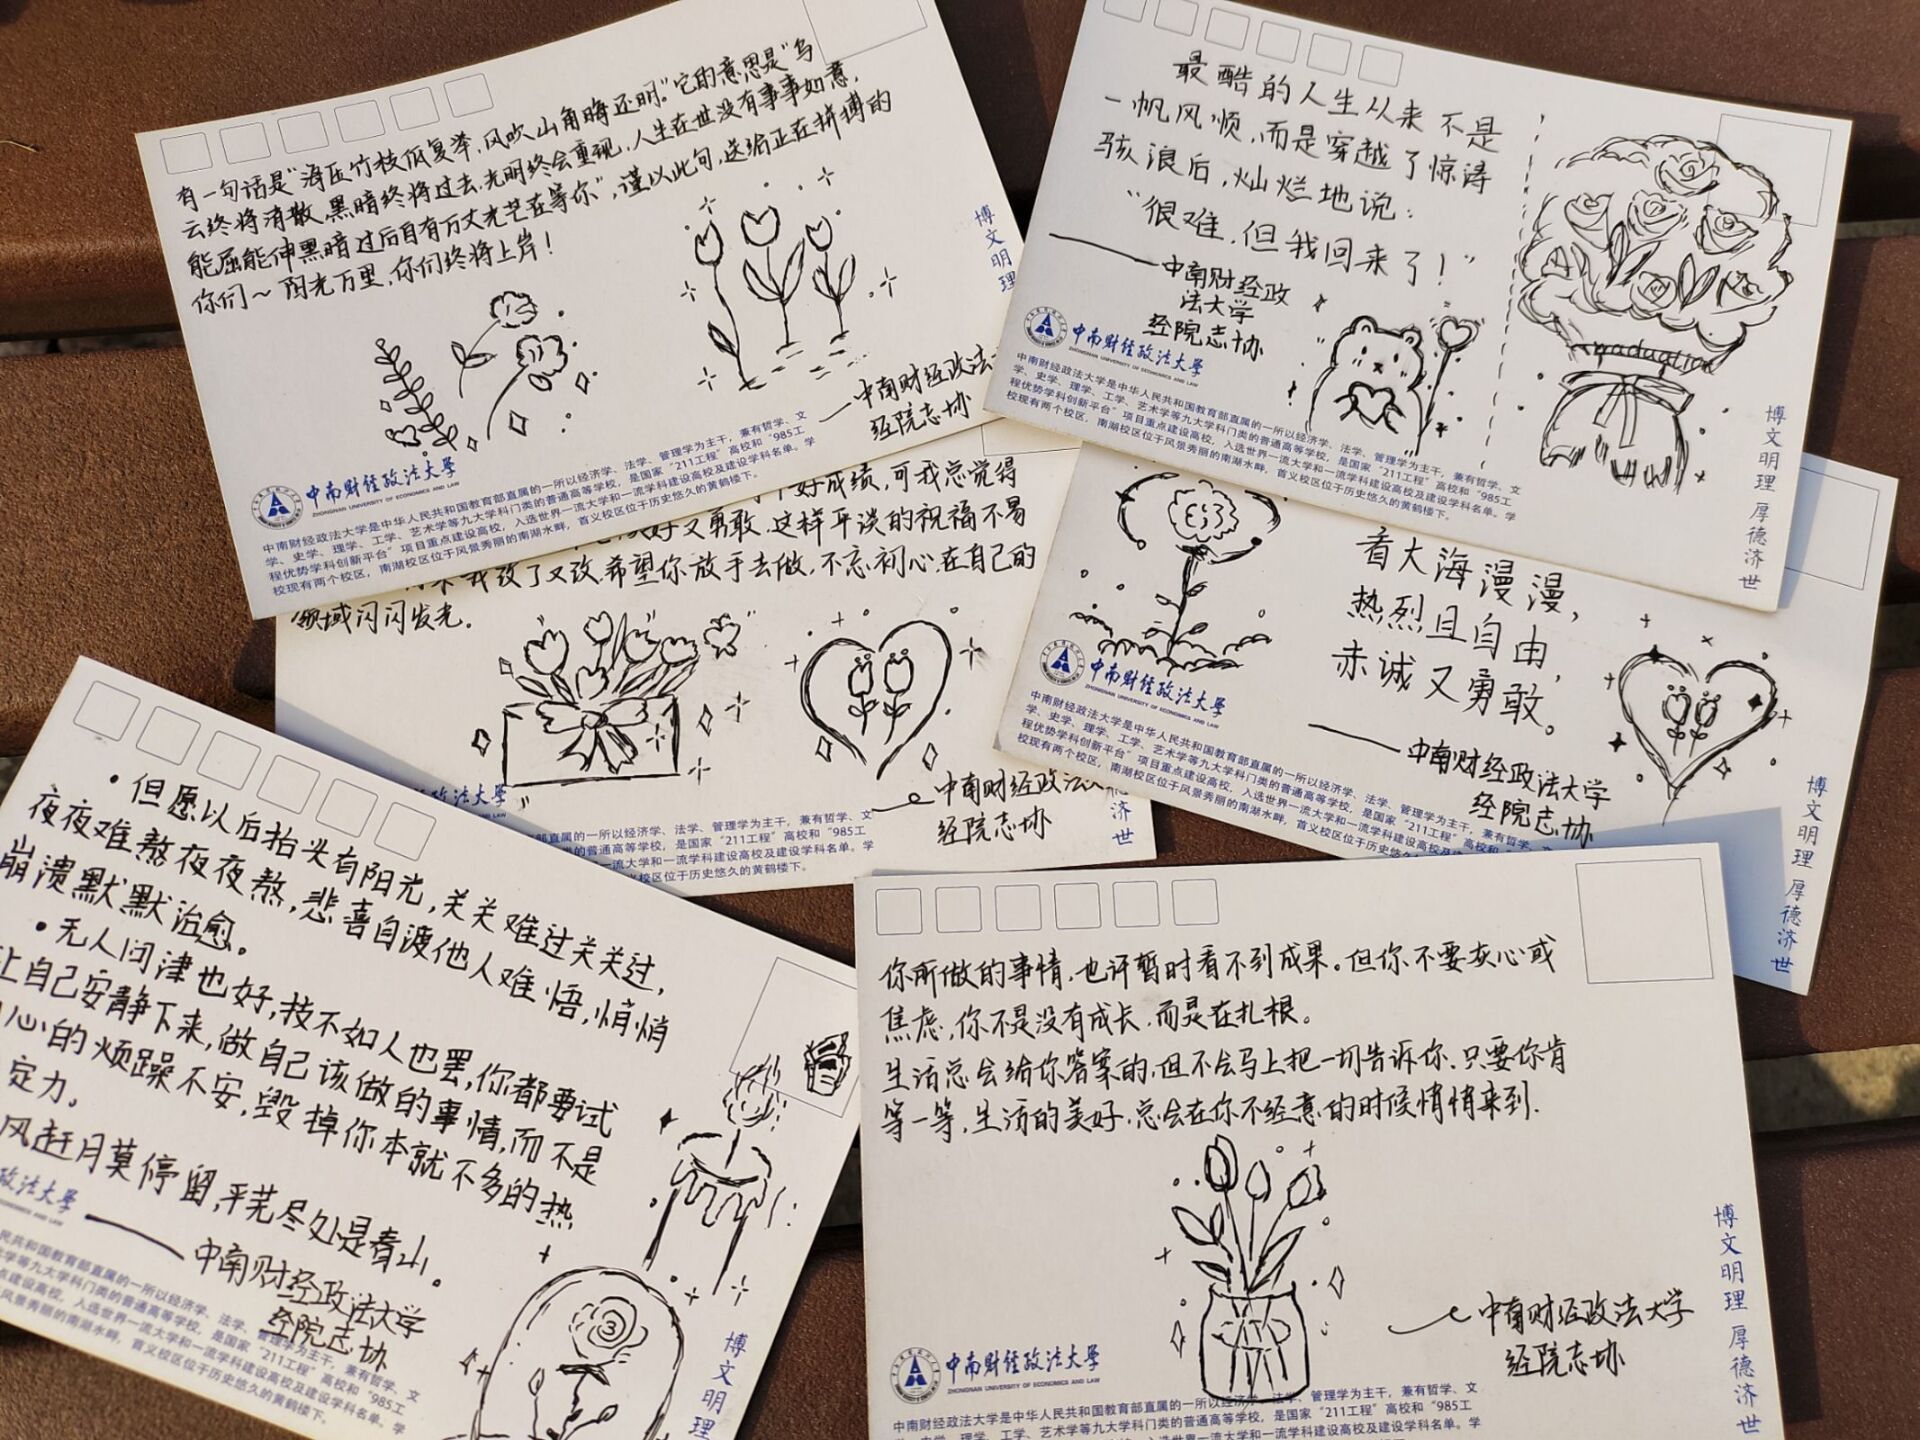 有一句话是“海压竹枝低复举,风吹山角晦还明。”它的意思是“乌
云终将消散,黑暗终将过去,光明终会重现,人生在世没有事事如意,
能屈能伸黑暗过后自有万丈光芒在等你”,谨以此句,送给正在拼搏的
你们~阳光万里,你们终将上岸!
——中南财经政法
经院志协
博文明理
中南财经政法大学
ZHONGNAN UNIVERSITY OF ECONOMICS AND LAW
中南财经政法大学是中华人民共和国教育部直属的一所以经济学、法学、管理学为主干,兼有哲学、文
学、史学、理学、工学、艺术学等九大学科门类的普通高等学校,是国家“211工程”高校和“985工
程优势学科创新平台”项目重点建设高校,入选世界一流大学和一流学科建设高校及建设学科名单。学
校现有两个校区,南湖校区位于风景秀丽的南湖水畔,首义校区位于历史悠久的黄鹤楼下。
最酷的人生从来不是
一帆风顺,而是穿越了惊涛
骇浪后,灿烂地说:
“很难,但我回来了!”
——中南财经政
法大学
经院志协
graduation
中南财经政法大学
ZHONGNAN UNIVERSITY OF ECONOMICS AND LAW
中南财经政法大学是中华人民共和国教育部直属的一所以经济学、法学、管理学为主干,兼有哲学、文
学、史学、理学、工学、艺术学等九大学科门类的普通高等学校,是国家“211工程”高校和“985工
程优势学科创新平台”项目重点建设高校,入选世界一流大学和一流学科建设高校及建设学科名单。学
校现有两个校区,南湖校区位于风景秀丽的南湖水畔,首义校区位于历史悠久的黄鹤楼下。
博文明理 厚德济世
好成绩,可我总觉得
好又勇敢,这样平淡的祝福不易
我改了又改,希望你放手去做,不忘初心,在自己的
领域闪闪发光。
中南财经政法
经院志协
政法大学
部直属的一所以经济学、法学、管理学为主干,兼有哲学、文
的普通高等学校,是国家“211工程”高校和“985工
一流大学和一流学科建设高校及建设学科名单。学
水畔,首义校区位于历史悠久的黄鹤楼下。
济世
看大海漫漫,
热烈且自由,
赤诚又勇敢。
——中南财经政法大学
经院志协
中南财经政法大学
ZHONGNAN UNIVERSITY OF ECONOMICS AND LAW
中南财经政法大学是中华人民共和国教育部直属的一所以经济学、法学、管理学为主干,兼有哲学、文
学、史学、理学、工学、艺术学等九大学科门类的普通高等学校,是国家“211工程”高校和“985工
程优势学科创新平台”项目重点建设高校,入选世界一流大学和一流学科建设高校
校现有两个校区,南湖校区位于风景秀丽的南湖水畔,首义校区位于历史悠久
博文明理 厚德济世
·但愿以后抬头有阳光,关关难过关关过,
夜夜难熬夜夜熬,悲喜自渡他人难悟,悄悄
崩溃默默治愈。
·无人问津也好,技不如人也罢,你都要试
让自己安静下来,做自己该做的事情,而不是
心的烦躁不安,毁掉你本就不多的热
定力。
风赶月莫停留,平芜尽处是春山。
——中南财经政法大学
经院志协
政法大学
民共和国教育部直属的一所以经济学、法学、管理学为主干,兼有哲学、文
学等九大学科门类的普通高等学校,是国家“211工程”高校和“985工
点建设高校,入选世界一流大学和一流学科建设高校及建设学科名单。学
风景秀丽的南湖水畔,首义校区位于历史悠久的黄鹤楼下。
博文明理
你所做的事情,也许暂时看不到成果。但你不要灰心或
焦虑,你不是没有成长,而是在扎根。
生活总会给你答案的,但不会马上把一切告诉你,只要你肯
等一等,生活的美好,总会在你不经意的时候悄悄来到.
中南财经政法大学
经院志协
中南财经政法大学
ZHONGNAN UNIVERSITY OF ECONOMICS AND LAW
中南财经政法大学是中华人民共和国教育部直属的一所以经济学、法学、管理学为主干,兼有哲学、文
学、史学、理学、工学、艺术学等九大学科门类的普通高等学校,是国家“211工程”高校和“985工
程优势学科创新平台”项目重点建设高校,入选世界一流大学和一流学科建设高校及建设学科名单。学
博文明理 厚德济世